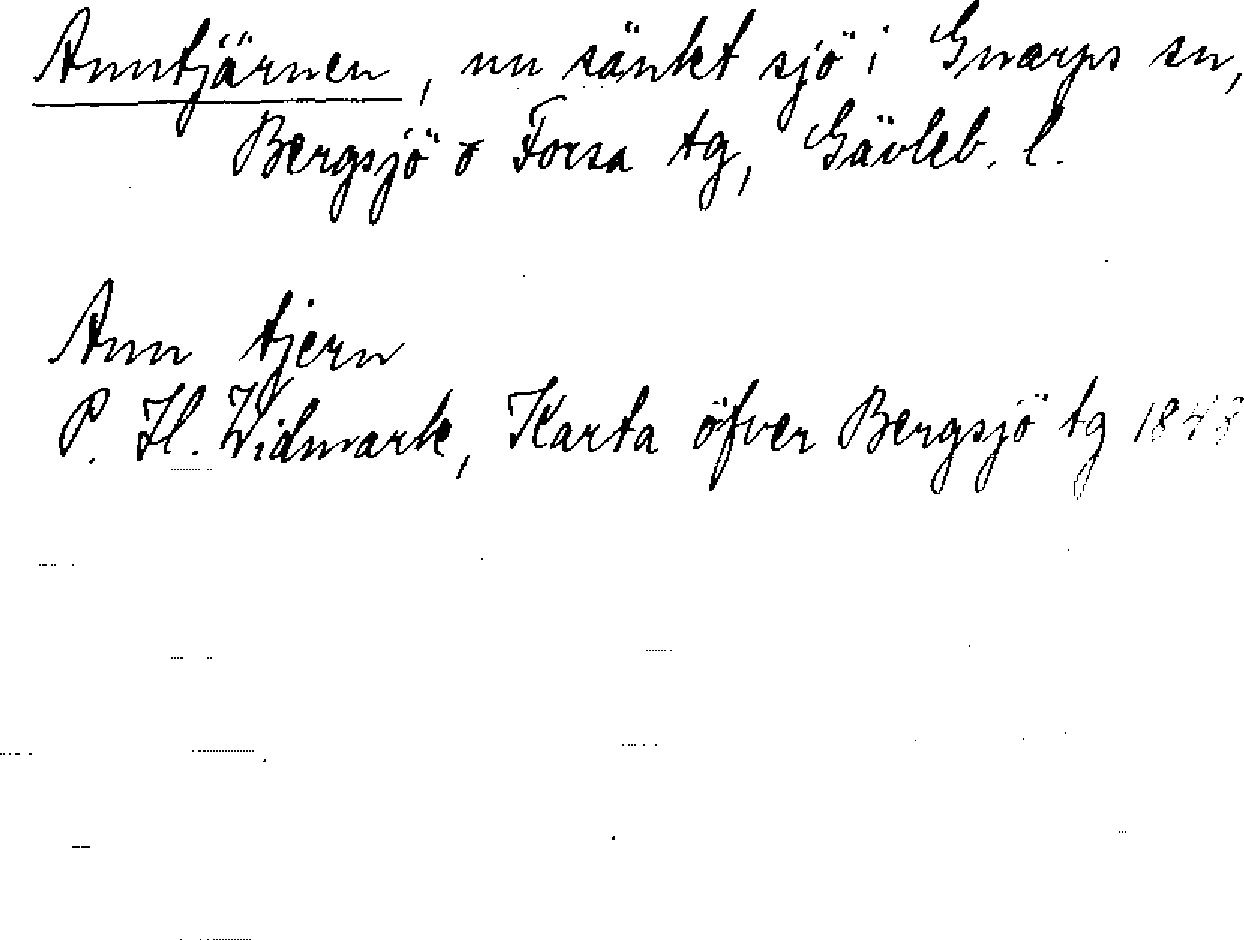 Anntjärnen, nu sänkt sjö i Gnarps sn,
Bergsjö o Forsa tg, Gävleb. l.
Ann tjern
P. H. Widmark, Karta öfver Bergsjö tg 1848